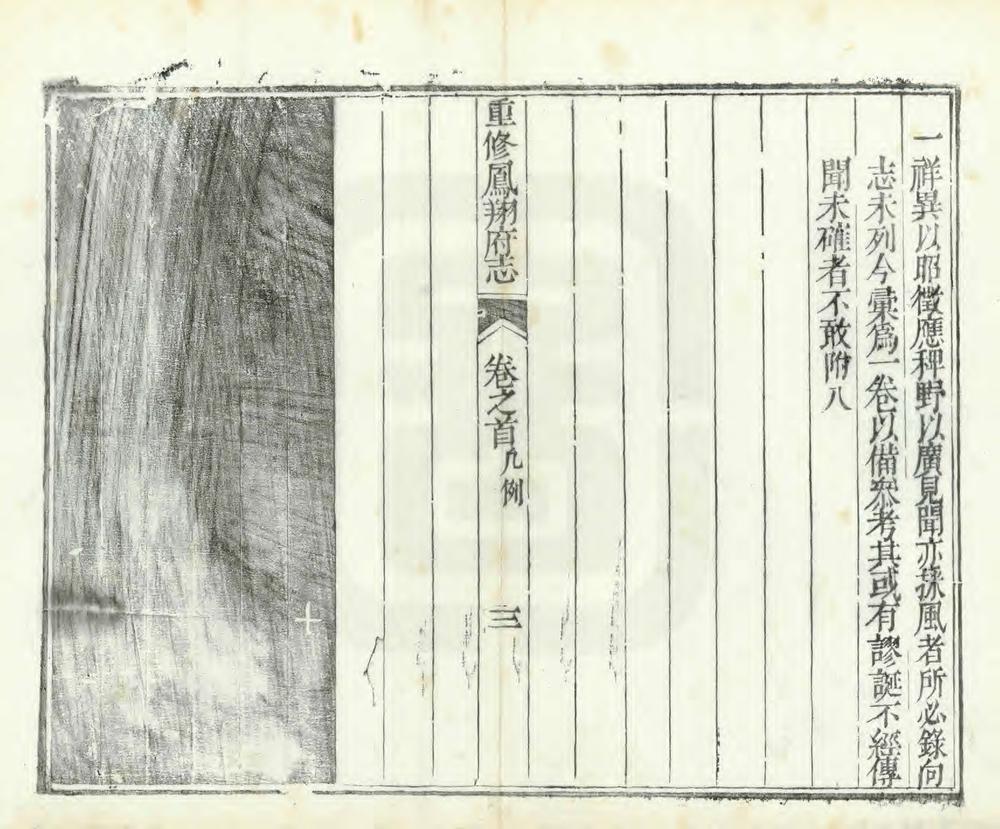 一祥異以昭徵應稗野以廣見聞亦採風者所必錄向
志未列今彙爲一卷以備叅考其或有謬誕不經傳
聞未確者不敢附入
重修鳳翔府志
卷之首凡例
三